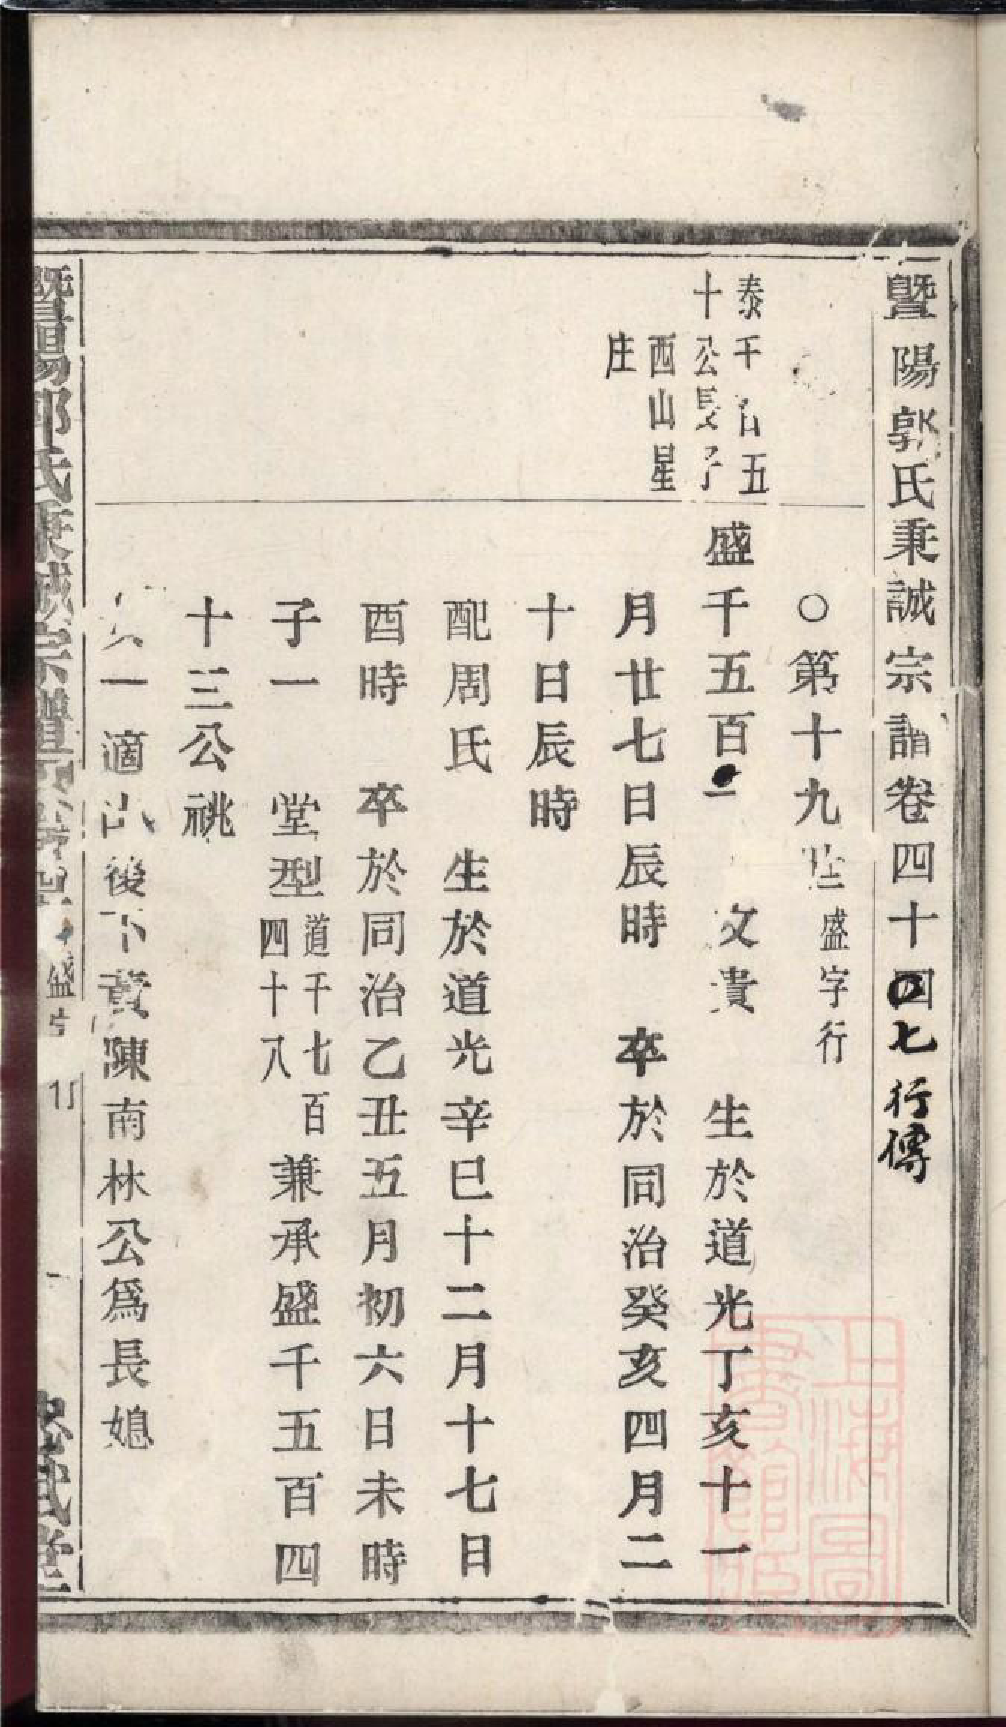 暨陽郭氏秉誠宗譜卷四十四七行傳
○第十九世盛字行
泰千百五
十公長子
西山星
庄
盛千五百一 文貴 生於道光丁亥十一
月廿七日辰時 卒於同治癸亥四月二
十日辰時
配周氏 生於道光辛巳十二月十七日
酉時 卒於同治乙丑五月初六日未時
子一 堂型道千七百四十八兼承盛千五百四
十三公祧
女一適 後下 陳南林公爲長媳
暨陽郭氏秉誠宗譜 盛
忠武堂
上海圖書館藏